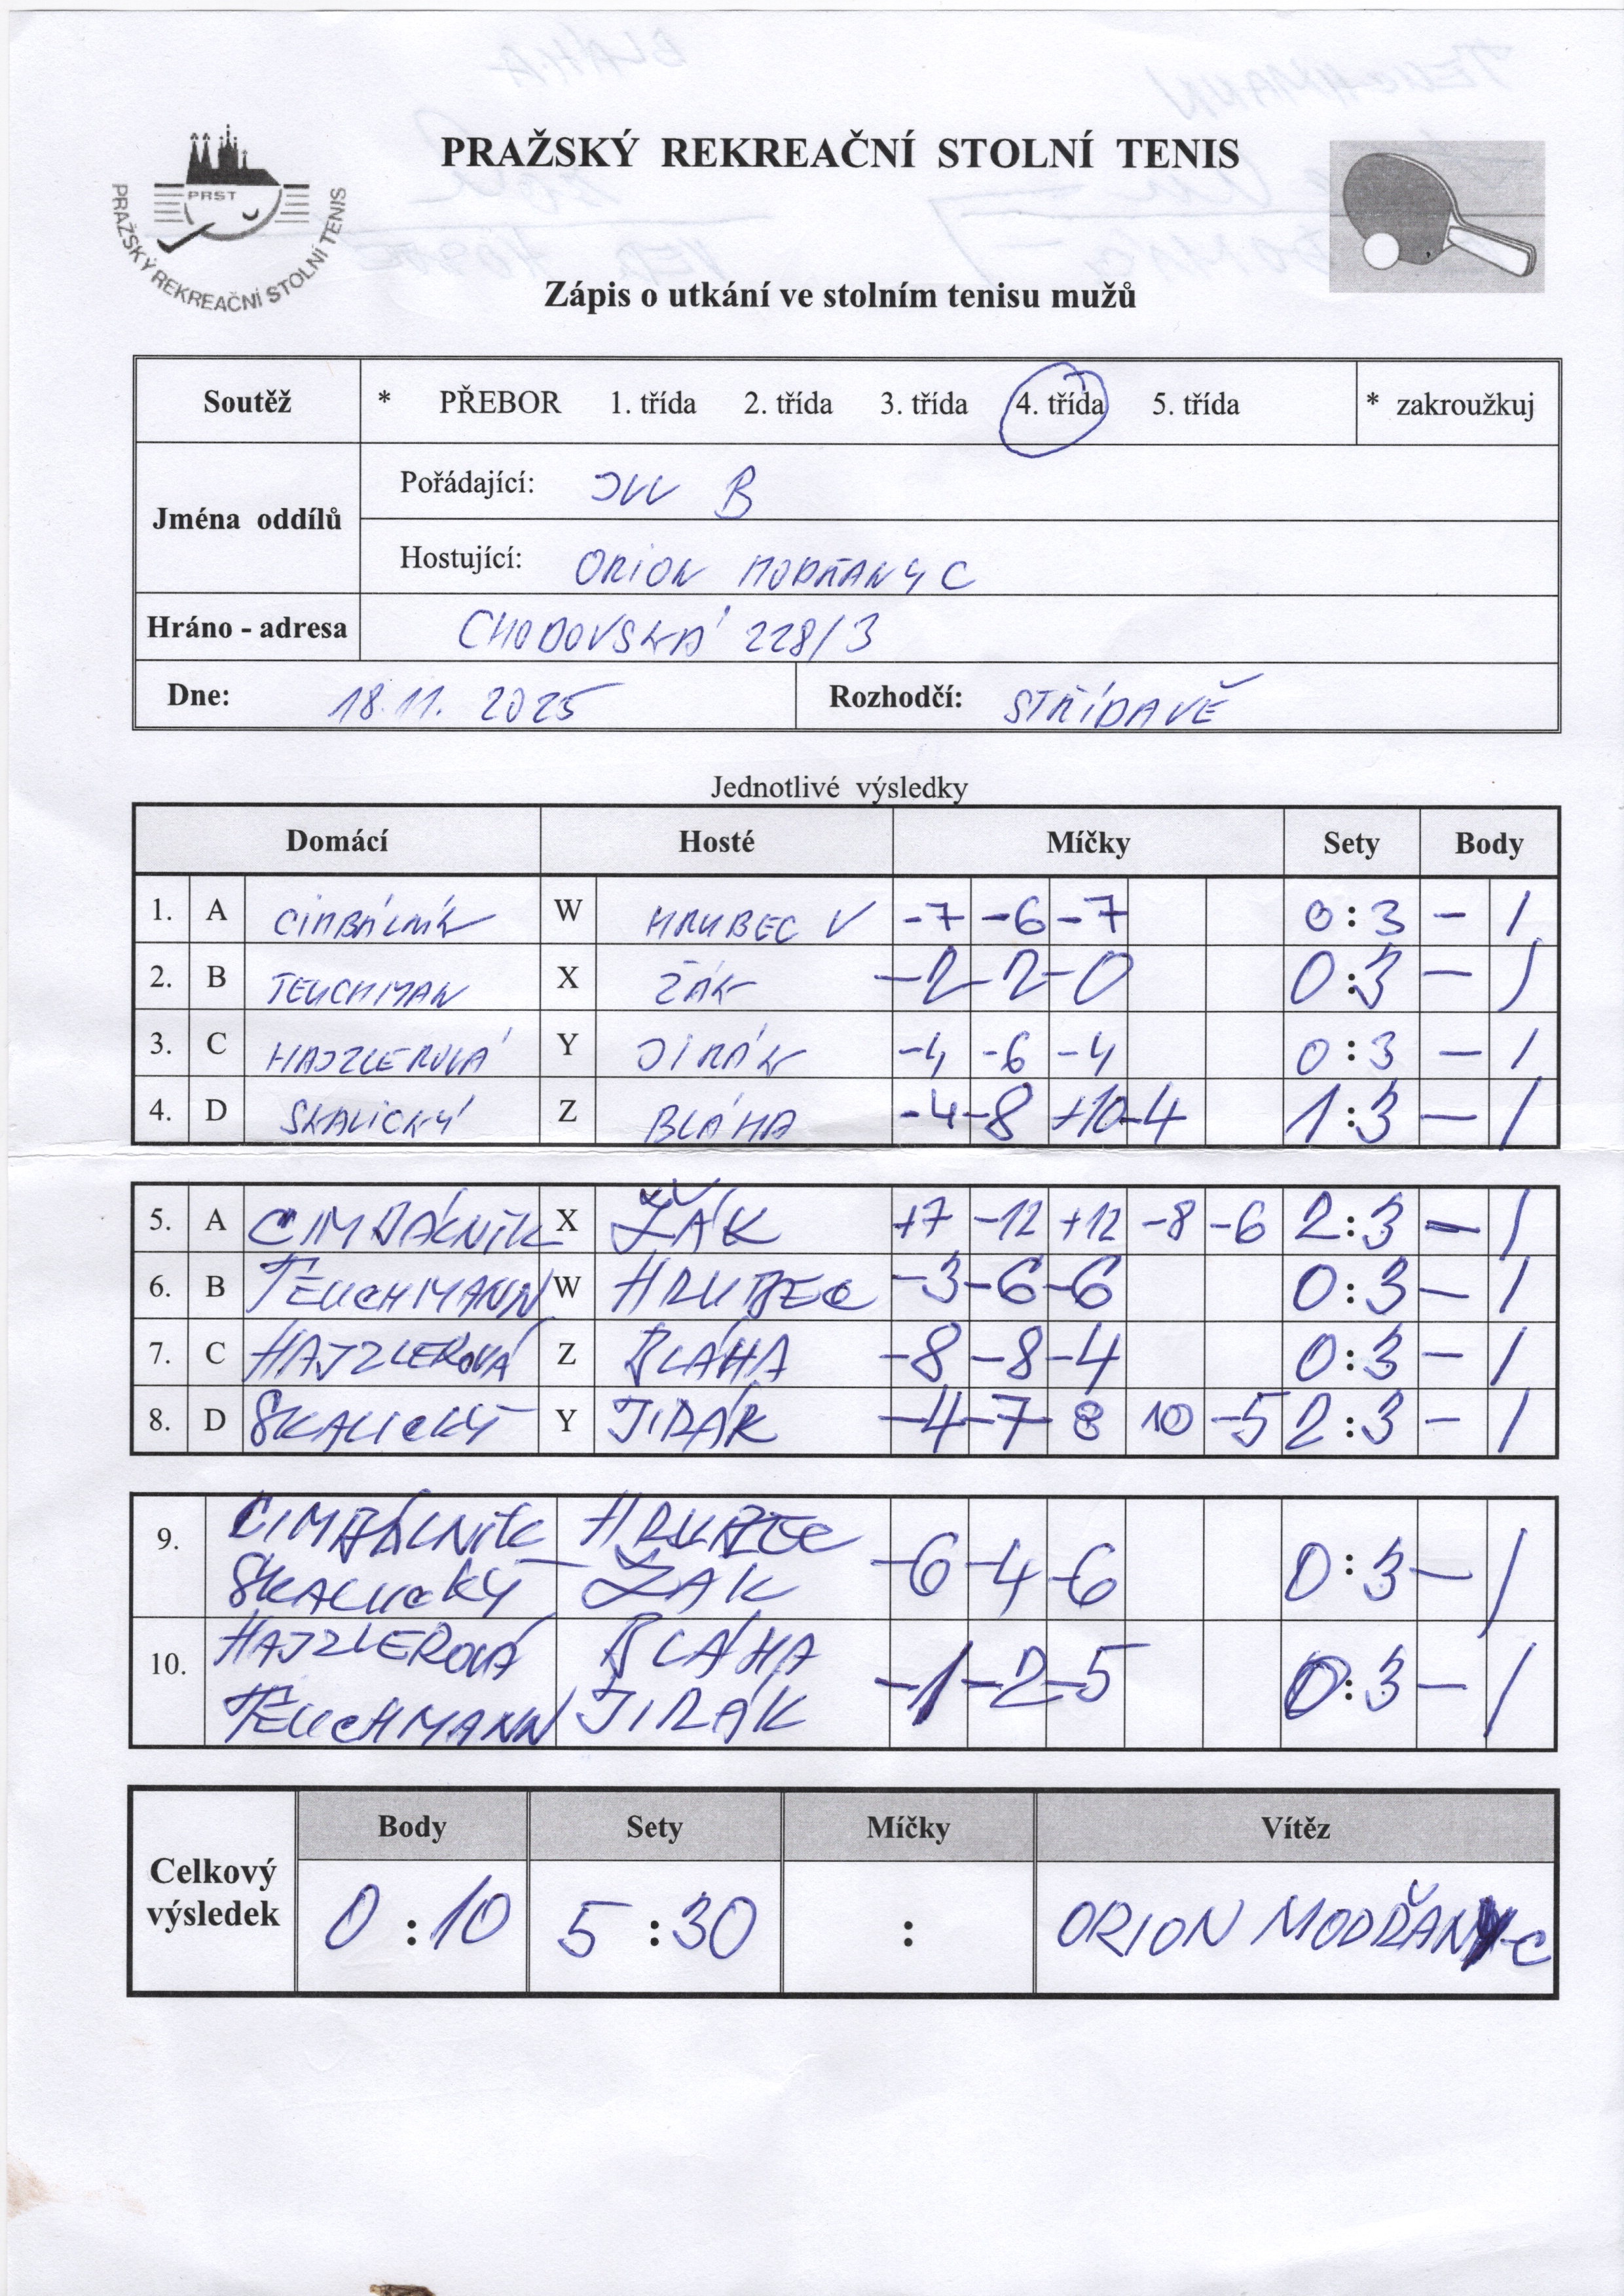 PRAŽSKÝ REKREAČNÍ STOLNÍ TENIS
PRST
PRAŽSKÝ REKREAČNÍ STOLNÍ TENIS
Zápis o utkání ve stolním tenisu mužů
Soutěž * PŘEBOR 1. třída 2. třída 3. třída 4. třída 5. třída * zakroužkuj
Jména oddílů
Pořádající: B
Hostující: ORION MODŘANY C
Hráno - adresa CHODOVSKÁ 228/3
Dne: 18.11. 2025 Rozhodčí: STŘÍDAVĚ
Jednotlivé výsledky
Domácí Hosté Míčky Sety Body
1. A CIMBÁLNÍK W HRUBEC V -7 -6 -7 0:3 - 1
2. B TEUCHMAN X ŽÁK -2 -2 -0 0:3 - 1
3. C HAJZLEROVÁ Y JIRÁK -4 -6 -4 0:3 - 1
4. D SKALICKÝ Z BLÁHA -4 -8 +10 -4 1:3 - 1
5. A CIMBÁLNÍK X ŽÁK +7 -12 +12 -8 -6 2:3 - 1
6. B TEUCHMANN W HRUBEC -3 -6 -6 0:3 - 1
7. C HAJZLEROVÁ Z BLÁHA -8 -8 -4 0:3 - 1
8. D SKALICKÝ Y JIRÁK -4 -7 8 10 -5 2:3 - 1
9. CIMBÁLNÍK HRUBEC -6 -4 -6 0:3 - 1
SKALICKÝ ŽÁK
10. HAJZLEROVÁ BLÁHA -1 -2 -5 0:3 - 1
TEUCHMANN JIRÁK
Celkový výsledek
Body Sety Míčky Vítěz
0 : 10 5 : 30 : ORION MODŘANY C